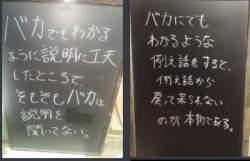 バカでもわかる
ように説明に工夫
したところで、
そもそもバカは
説明を
聞いてない。
バカにでも
わかるような
例え話をすると、
例え話から
戻って来られない
のが本物である。